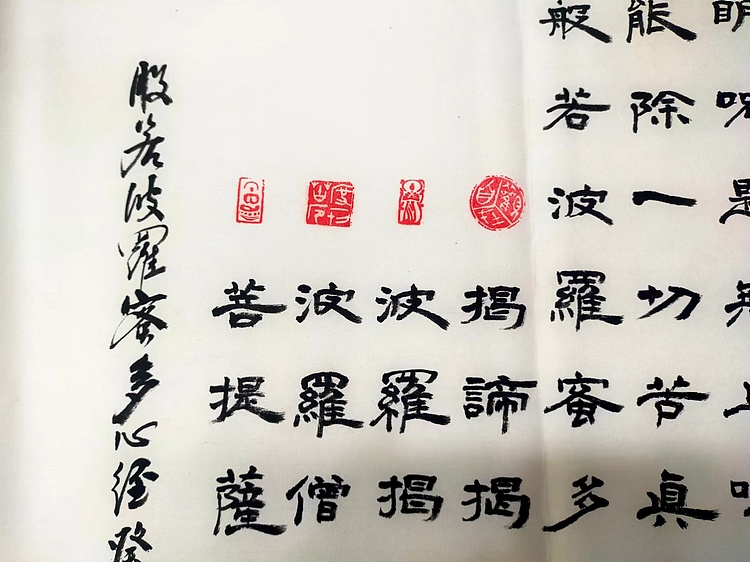 明呪是無上呪
能除一切苦真
般若波羅蜜多
觀自在
揭諦揭
波羅揭
度一切苦厄
波羅僧
菩提薩
般若波羅蜜多心經癸